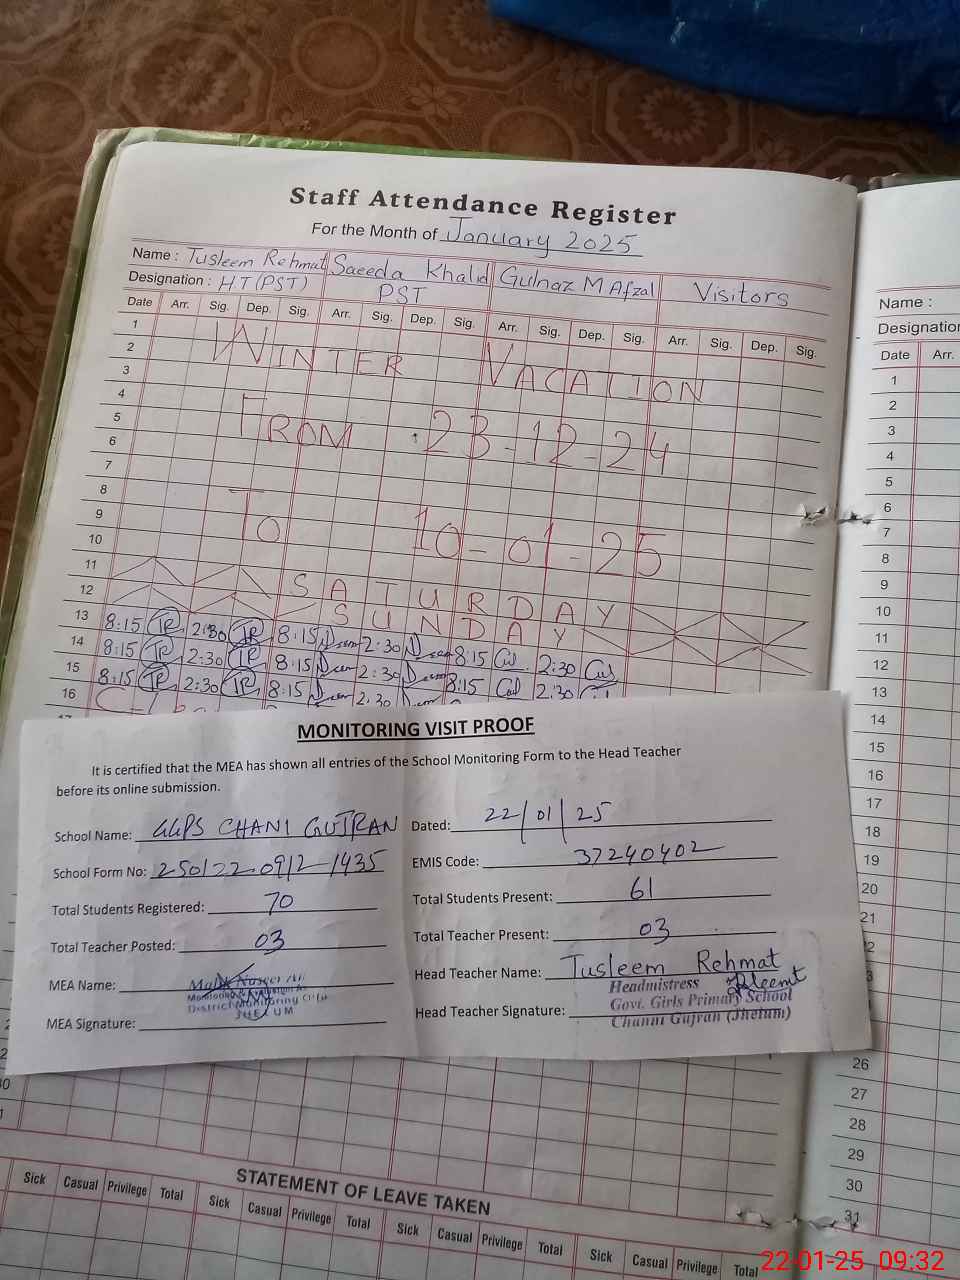 Staff Attendance Register
For the Month of January 2025
Name : Tusleem Rehmat Saeeda Khalid Gulnaz M Afzal Visitors
Designation : HT (PST) PST
Date Arr. Sig. Dep. Sig. Arr. Sig. Dep. Sig. Arr. Sig. Dep. Sig. Arr. Sig. Dep. Sig.
1
2 WINTER VACATION
3
4
5 FROM 23-12-24
6
7
8
9 TO 10-01-25
10
11 SATURDAY
12 SUNDAY
13 8:15 TR 2:30 TR 8:15 2:30 8:15 2:30
14 8:15 TR 2:30 TR 8:15 2:30 8:15 2:30
15 8:15 TR 2:30 TR 8:15 2:30 8:15 2:30
16
MONITORING VISIT PROOF
It is certified that the MEA has shown all entries of the School Monitoring Form to the Head Teacher
before its online submission.
School Name: GGPS CHANI GUJRAN Dated: 22/01/25
School Form No: 250122-0912-1435 EMIS Code: 37240402
Total Students Registered: 70 Total Students Present: 61
Total Teacher Posted: 03 Total Teacher Present: 03
MEA Name: Head Teacher Name: Tusleem Rehmat
District Monitoring
JHELUM
MEA Signature: Head Teacher Signature:
Headmistress
Govt. Girls Primary School
Channi Gujran (Jhelum)
STATEMENT OF LEAVE TAKEN
Sick Casual Privilege Total Sick Casual Privilege Total Sick Casual Privilege Total Sick Casual Privilege Total
Name :
Designation
Date Arr.
1
2
3
4
5
6
7
8
9
10
11
12
13
14
15
16
17
18
19
20
21
26
27
28
29
30
31
22-01-25 09:32